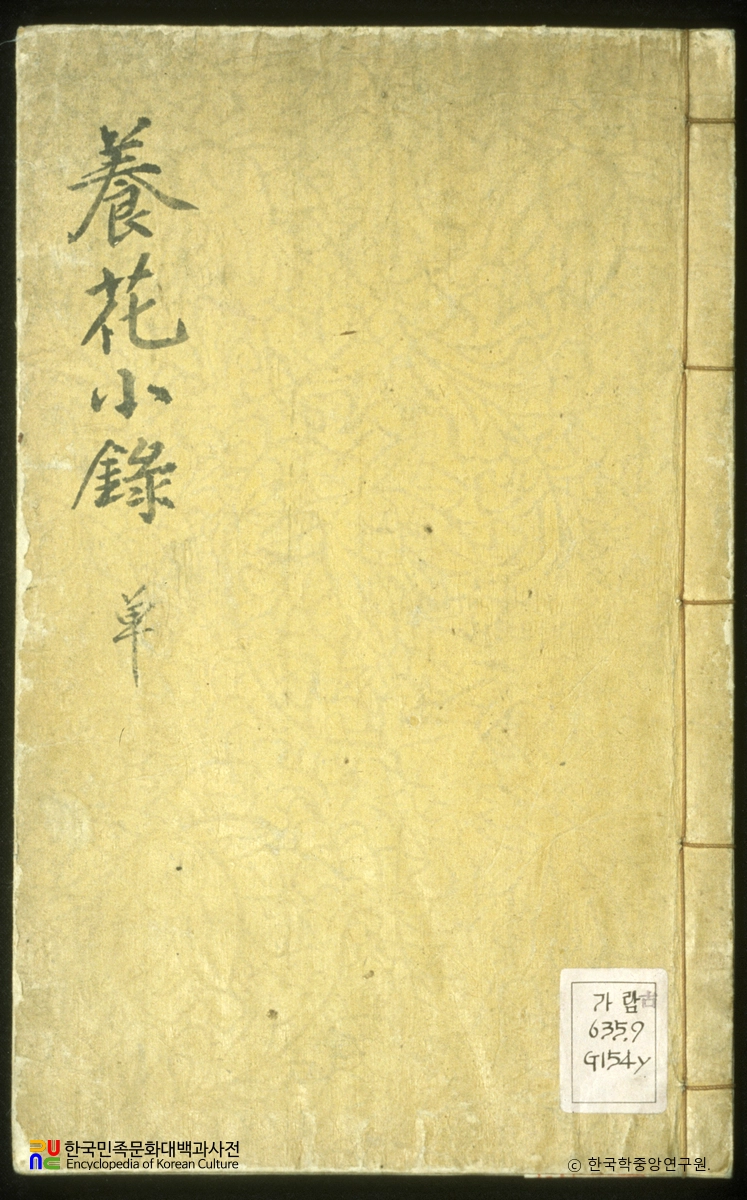 養花小錄
單
가람 古
635.9
G154y
한국민족문화대백과사전
Encyclopedia of Korean Culture
© 한국학중앙연구원